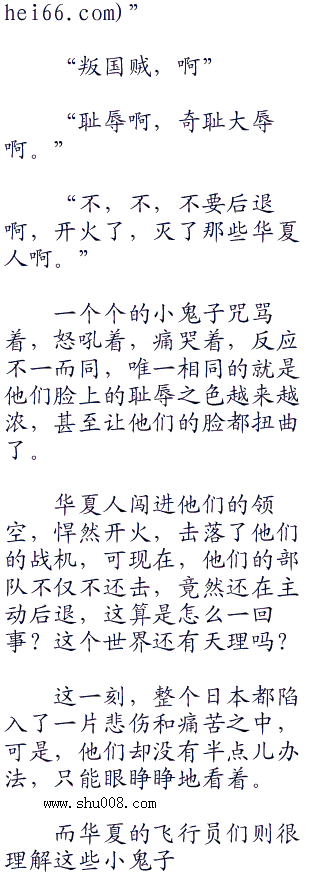 hei66.com)”
“叛国贼，啊”
“耻辱啊，奇耻大辱
啊。”
“不，不，不要后退
啊，开火了，灭了那些华夏
人啊。”
一个个的小鬼子咒骂
着，怒吼着，痛哭着，反应
不一而同，唯一相同的就是
他们脸上的耻辱之色越来越
浓，甚至让他们的脸都扭曲
了。
华夏人闯进他们的领
空，悍然开火，击落了他们
的战机，可现在，他们的部
队不仅不还击，竟然还在主
动后退，这算是怎么一回
事？这个世界还有天理吗？
这一刻，整个日本都陷
入了一片悲伤和痛苦之中，
可是，他们却没有半点儿办
法，只能眼睁睁地看着。
www.shu008.com
而华夏的飞行员们则很
理解这些小鬼子